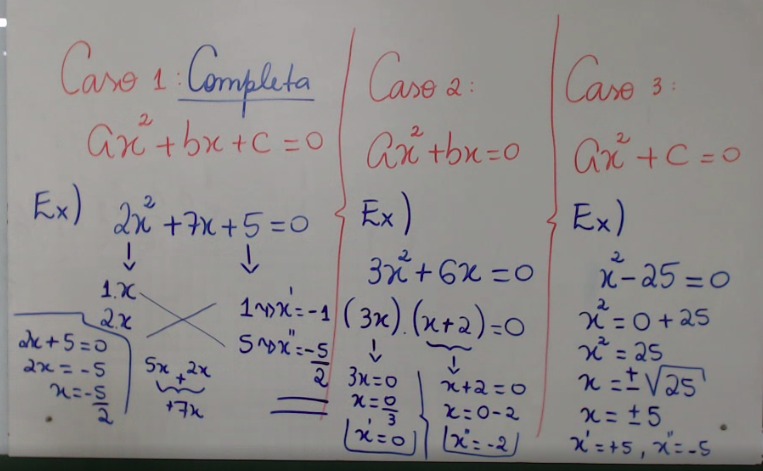 Caso 1: Completa
ax² + bx + c = 0
Ex) 2x² + 7x + 5 = 0
↓ ↓
1.x 1 ⇝ x' = -1
2.x 5 ⇝ x'' = -5/2
5x + 2x
+7x
2x + 5 = 0
2x = -5
x = -5/2
Caso 2:
ax² + bx = 0
Ex)
3x² + 6x = 0
(3x).(x+2) = 0
↓ ↓
3x = 0
x = 0/3
x' = 0
x + 2 = 0
x = 0 - 2
x'' = -2
Caso 3:
ax² + c = 0
Ex)
x² - 25 = 0
x² = 0 + 25
x² = 25
x = ±√25
x = ±5
x' = +5, x'' = -5